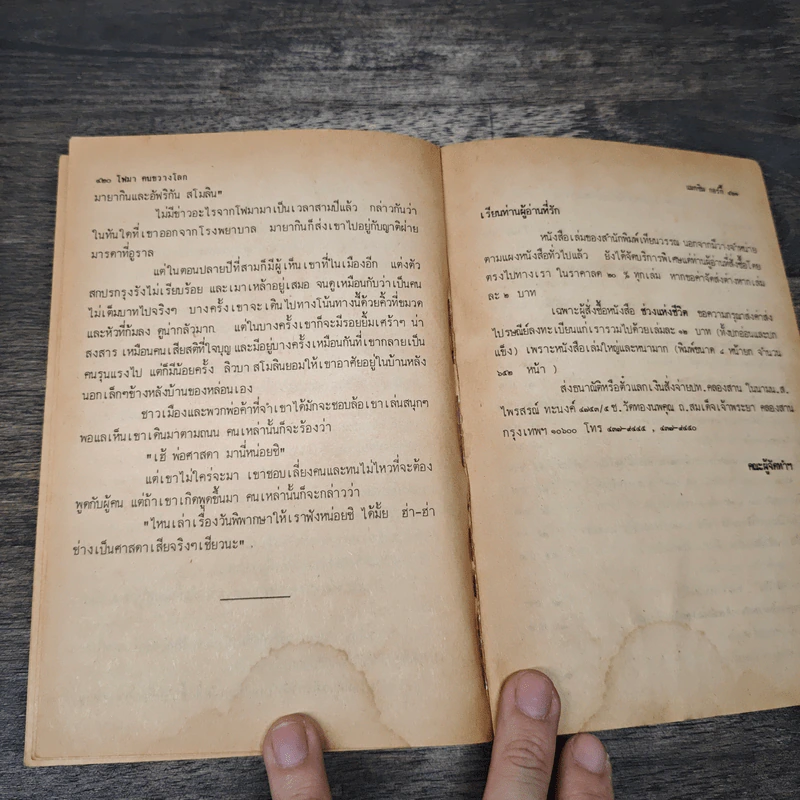 ๔๒๐ โฟมา คนขวางโลก
มายากินและอัฟริกัน สโมลิน"
ไม่มีข่าวอะไรจากโฟมามาเป็นเวลาสามปีแล้ว กล่าวกันว่า
ในทันใดที่เขาออกจากโรงพยาบาล มายากินก็ส่งเขาไปอยู่กับญาติฝ่าย
มารดาที่อูราล
แต่ในตอนปลายปีที่สามก็มีผู้เห็นเขาที่ในเมืองอีก แต่งตัว
สกปรกรุงรังไม่เรียบร้อย และเมาเหล้าอยู่เสมอ จนดูเหมือนกับว่าเป็นคน
ไม่เต็มบาทไปจริงๆ บางครั้งเขาจะเดินไปทางโน้นทางนี้ด้วยคิ้วที่ขมวด
และหัวที่ก้มลง ดูน่ากลัวมาก แต่ในบางครั้งเขาก็จะมีรอยยิ้มเศร้าๆ น่า
สงสาร เหมือนคนเสียสติที่ใจบุญ และมีอยู่บางครั้งเหมือนกันที่เขากลายเป็น
คนรุนแรงไป แต่ก็มีน้อยครั้ง ลิวบา สโมลินยอมให้เขาอาศัยอยู่ในบ้านหลัง
นอกเล็กๆข้างหลังบ้านของหล่อนเอง
ชาวเมืองและพวกพ่อค้าที่จำเขาได้มักจะชอบล้อเขาเล่นสนุกๆ
พอแลเห็นเขาเดินมาตามถนน คนเหล่านั้นก็จะร้องว่า
"เฮ้ พ่อศาสดา มานี่หน่อยซิ"
แต่เขาไม่ใคร่จะมา เขาชอบเลี่ยงคนและทนไม่ไหวที่จะต้อง
พูดกับผู้คน แต่ถ้าเขาเกิดพูดขึ้นมา คนเหล่านั้นก็จะกล่าวว่า
"ไหนเล่าเรื่องวันพิพากษาให้เราฟังหน่อยซิ ได้มั้ย ฮ่า-ฮ่า
ช่างเป็นศาสดาเสียจริงๆเชียวนะ"
แมกซิม กอร์กี้ ๔๒๑
เรียนท่านผู้อ่านที่รัก
หนังสือเล่มของสำนักพิมพ์เทียนวรรณ นอกจากมีวางจำหน่าย
ตามแผงหนังสือทั่วไปแล้ว ยังได้จัดบริการพิเศษแด่ท่านผู้อ่านที่สั่งซื้อโดย
ตรงไปทางเรา ในราคาลด ๒๐ % ทุกเล่ม หากขอค่าจัดส่งต่างหากเล่ม
ละ ๒ บาท
เฉพาะผู้สั่งซื้อหนังสือ ช่วงแห่งชีวิต ขอความกรุณาส่งค่าส่ง
ไปรษณีย์ลงทะเบียนแก่เรารวมไปด้วยเล่มละ ๑๒ บาท (ทั้งปกอ่อนและปก
แข็ง) เพราะหนังสือเล่มใหญ่และหนามาก (พิมพ์ขนาด ๘ หน้ายก จำนวน
๖๕๒ หน้า )
ส่งธนาณัติหรือตั๋วแลกเงินสั่งจ่ายปท.คลองสาน ในนามน.ส.
ไพรสรณ์ ทะนงค์ ช.วัดทองนพคุณ ถ.สมเด็จเจ้าพระยา คลองสาน
กรุงเทพฯ ๑๐๖๐๐ โทร
คณะผู้จัดทำฯ